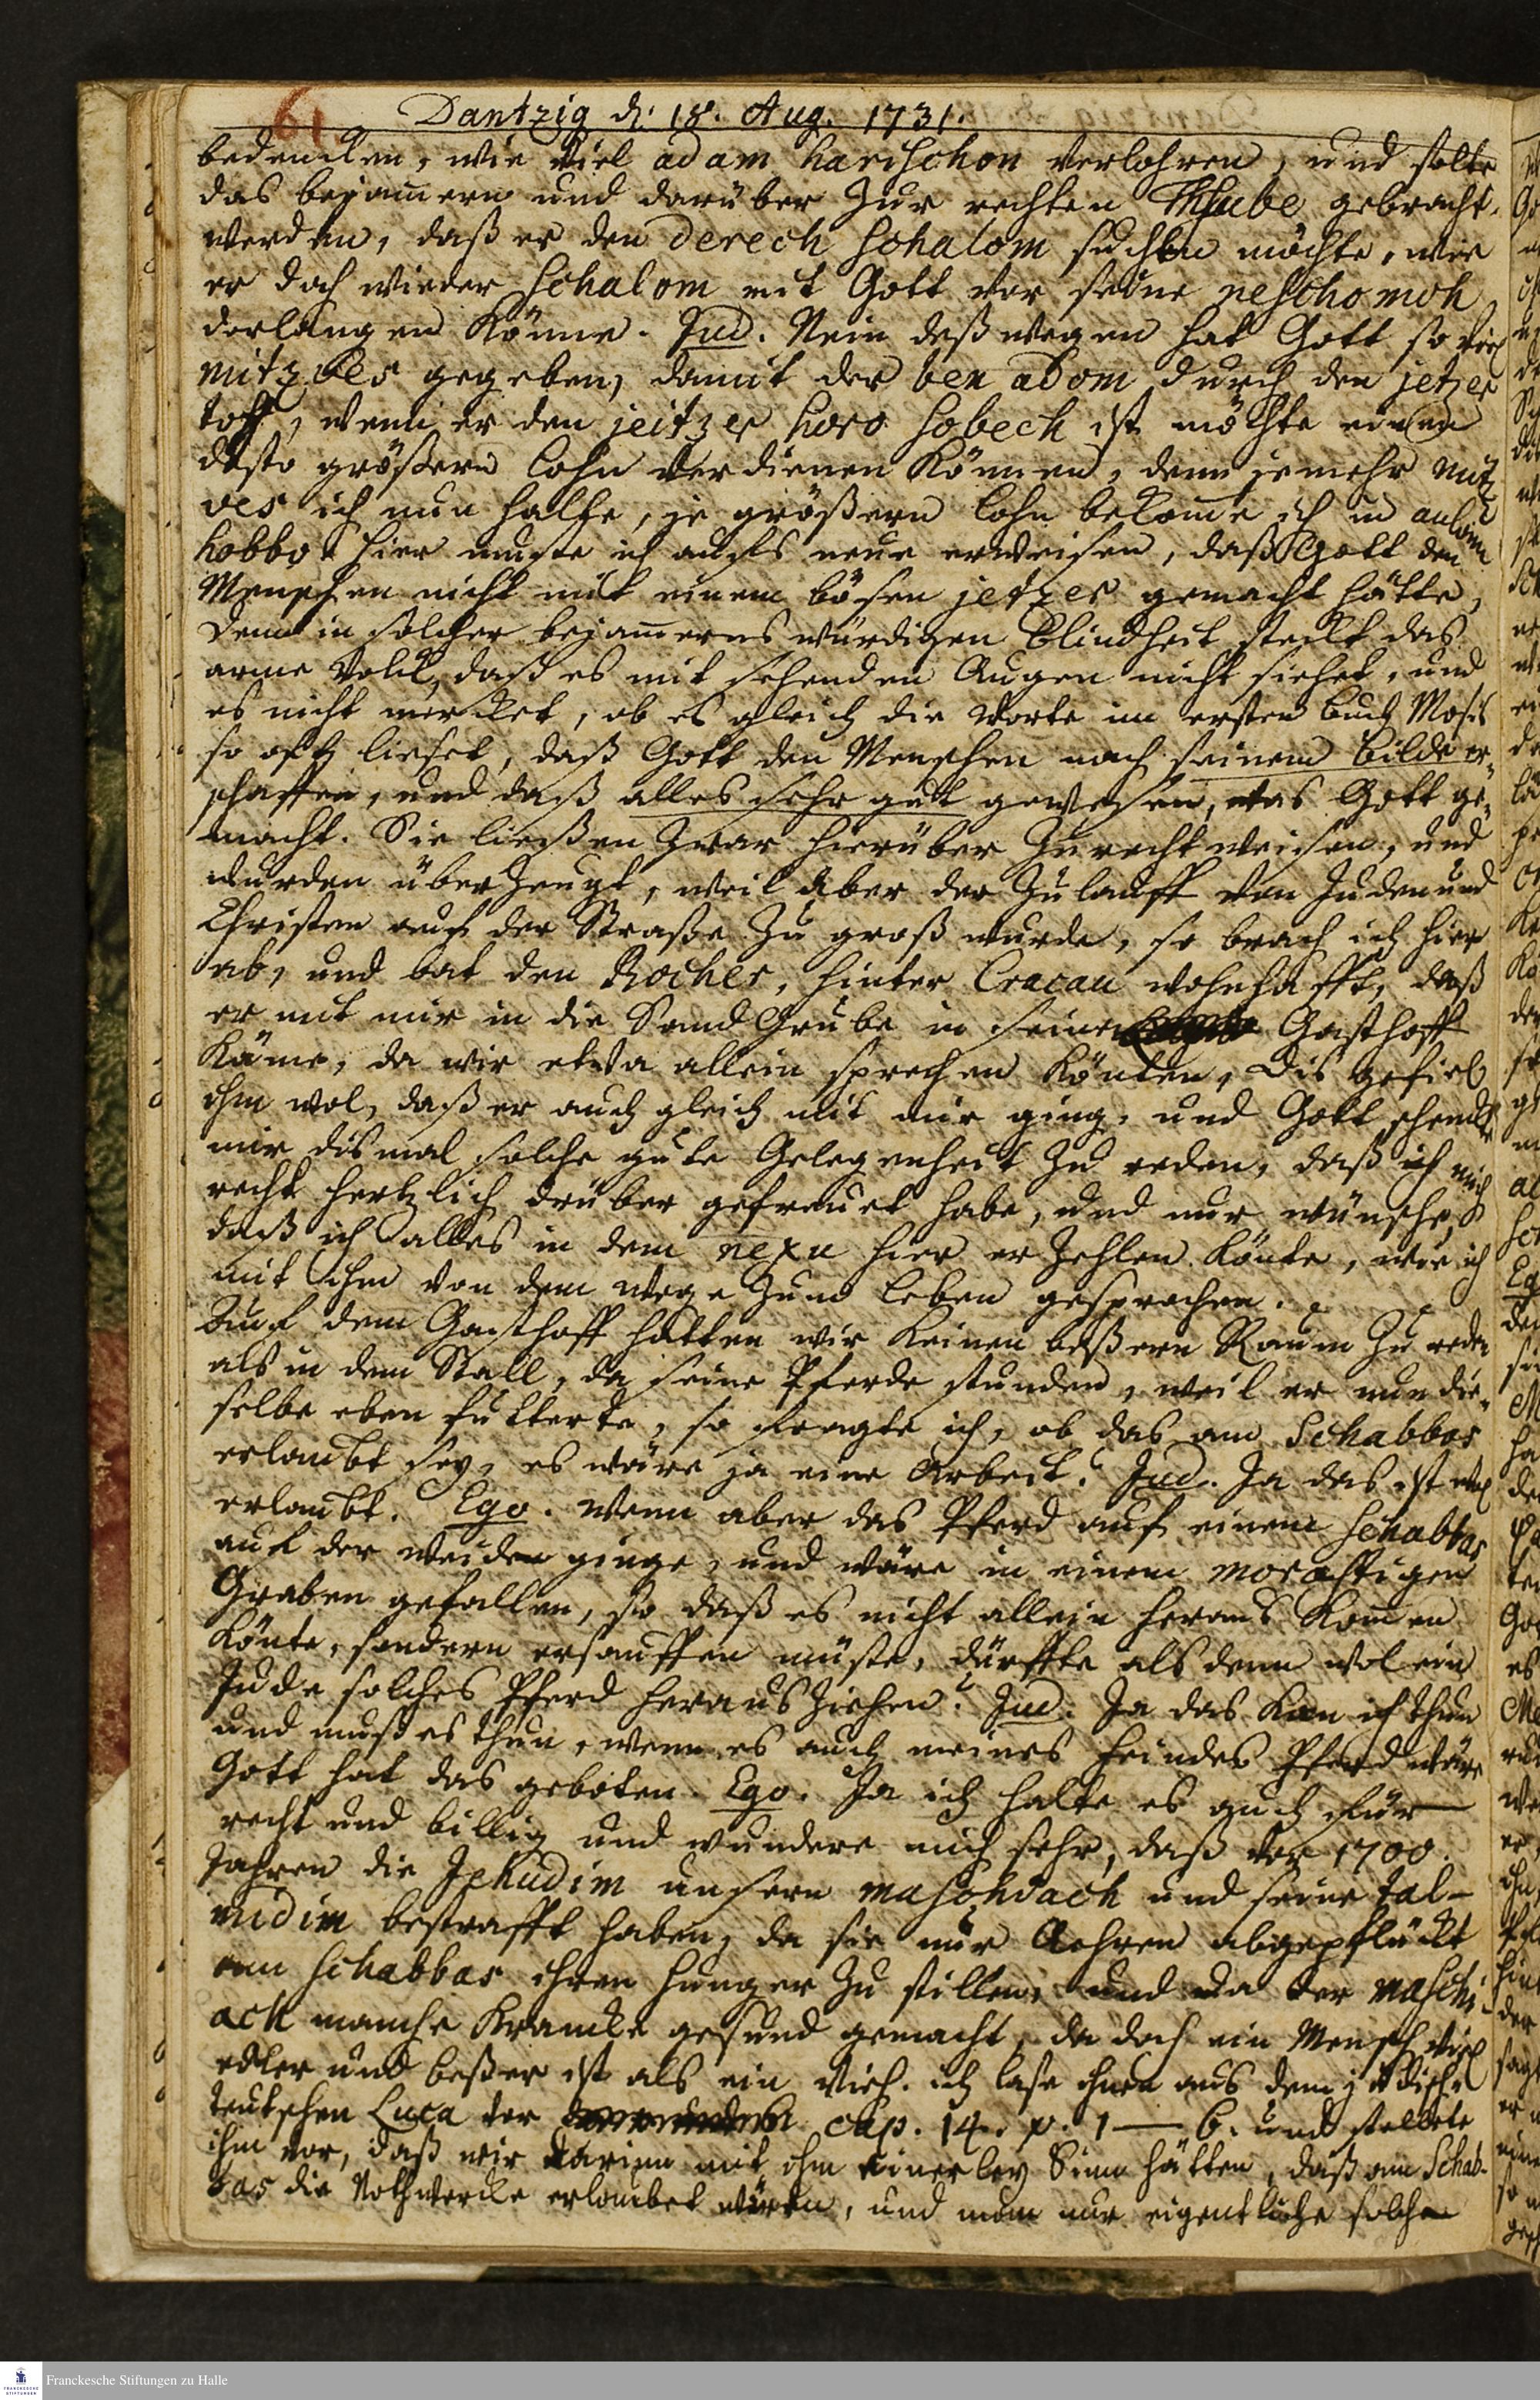 61
Dantzig d. 18. Aug. 1731.
bedencken, wie viel adam harischon verlohren, und solte
das bejam̄ern und darüber zur rechten Thſube gebracht
werden, daß er den derech schalom suchen möchte, wie
er doch wieder schalom mit Gott vor seine neschomoh
derlangen könne. Jud. Nein deßwegen hat Gott so viel
mitzves gegeben, damit der ben adom durch den jetzer
toff, wenn er den jeitzer horo sobech ist möchte einen
desto größern Lohn verdienen können, denn jemehr mitz
ves ich nun halte, je größern Lohn bekom̄e ich in aulom
habbo. Hier muste ich aufs neue erweisen, daß Gott den
Menschen nicht mit einem bösen jetzer gemacht hätte,
denn in solcher bejam̄erns würdigen Blindheit steckt das
arme Volck, daß es mit sehenden Augen nicht siehet, und
es nicht mercket, ob es gleich die Worte im ersten Buch Mosis
so offt lieset, daß Gott den Menschen nach seinem Bilde er-
schaffen, und daß alles sehr gut gewesen, was Gott ge-
macht. Sie ließen zwar hierüber zurecht weisen, und
wurden überzeugt, weil aber der Zulauff von Juden und
Christen auf der Straße zu groß wurde, so brach ich hier
ab, und bat den Rocher, hinter Cracau wohnhafft, daß
er mit mir in die Sand Grube in seinen Gasthoff
käme, da wir etwa allein sprechen könten, dis gefiel
ihm wol, daß er auch gleich mit mir ging, und Gott schenckte
mir dismal solche gute Gelegenheit zu reden, daß ich mich
recht hertzlich drüber gefreuet habe, und nur wünsche,
daß ich alles in dem nexu hier erzehlen könte, wie ich
mit ihm von dem Wege zum Leben gesprochen.
Auf dem Gasthoff hatten wir keinen beßern Raum zu reden
als in dem Stall, da seine Pferde stunden, weil er nun die-
selbe eben futterte, so fragte ich, ob das am Schabbas
erlaubt sey, es wäre ja eine Arbeit? Jud. Ja das ist wol
erlaubt. Ego. Wenn aber das Pferd auf einem Schabbas
auf der Weiden ginge, und wäre in einem morastigen
Graben gefallen, so daß es nicht allein heraus kom̄en
könte, sondern ersauffen müste, dürffte alsdenn wol ein
Jude solches Pferd herausziehen? Jud. Ja das kan ich thun
und muß es thun, wenn es auch meines Feindes Pferd wäre
Gott hat das geboten. Ego. Ja ich halte es auch für
recht und billig und wundere mich sehr, daß vor 1700.
Jahren die Jehudim unsern maschiach und seine tal-
midim bestrafft haben, da sie nur Aehren abgepflückt
am Schabbas ihren Hunger zu stillen, und da der maschi-
ach manche Krancke gesund gemacht, da doch ein Mensch viel
edler und beßer ist als ein Vieh. ich lase ihnen aus dem jüdisch
teutschen Luca vor cap. 14. v. 1 — 6. und stellete
ihm vor, daß wir darinn mit ihm einerley Sinn hätten, daß am Schab-
bas die Nothwercke erlaubet wären, und man nur eigentliche solche
Franckesche Stiftungen zu Halle